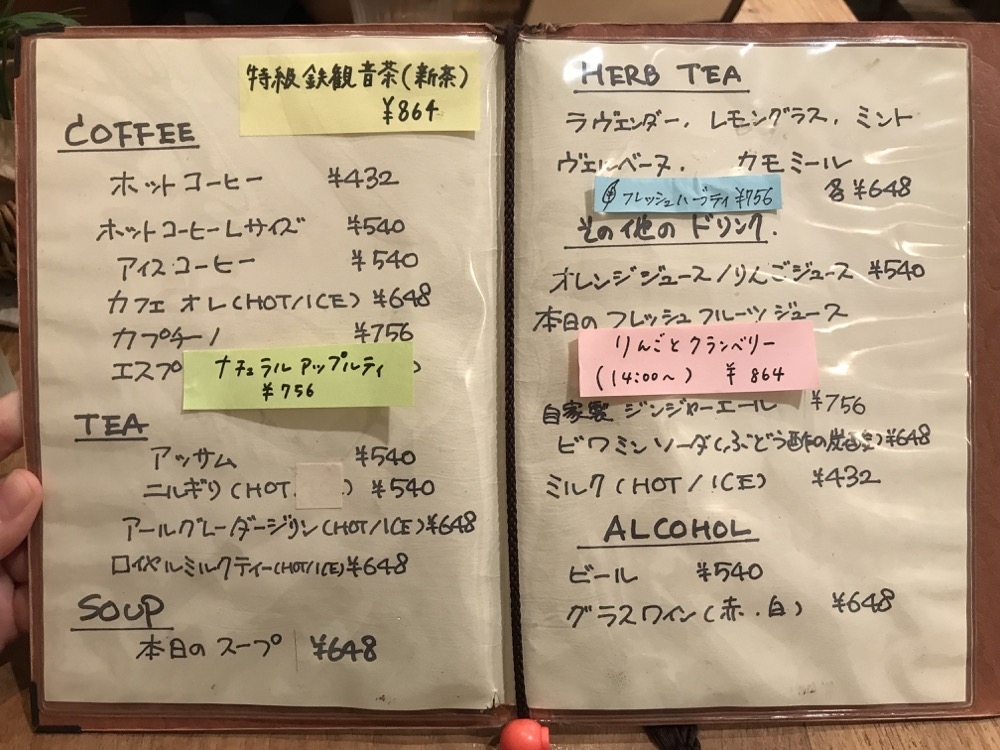 特級鉄観音茶(新茶)
¥864
COFFEE
ホットコーヒー ¥432
ホットコーヒーLサイズ ¥540
アイスコーヒー ¥540
カフェオレ(HOT/ICE) ¥648
カプチーノ ¥756
エスプ
ナチュラルアップルティ
¥756
TEA
アッサム ¥540
ニルギリ(HOT ) ¥540
アールグレーダージリン(HOT/ICE)¥648
ロイヤルミルクティー(HOT/ICE)¥648
SOUP
本日のスープ ¥648
HERB TEA
ラヴェンダー、レモングラス、ミント
ヴェルベーヌ、カモミール
各¥648
フレッシュハーブティ¥756
その他のドリンク
オレンジジュース/りんごジュース ¥540
本日のフレッシュフルーツジュース
りんごとクランベリー
(14:00~) ¥864
自家製 ジンジャーエール ¥756
ビワミンソーダ(ぶどう酢の炭酸)¥648
ミルク(HOT/ICE) ¥432
ALCOHOL
ビール ¥540
グラスワイン(赤.白) ¥648